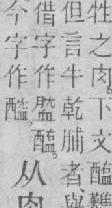 牲之肉。下文醢難
但言牛乾脯者與
借字作
今字作
从肉